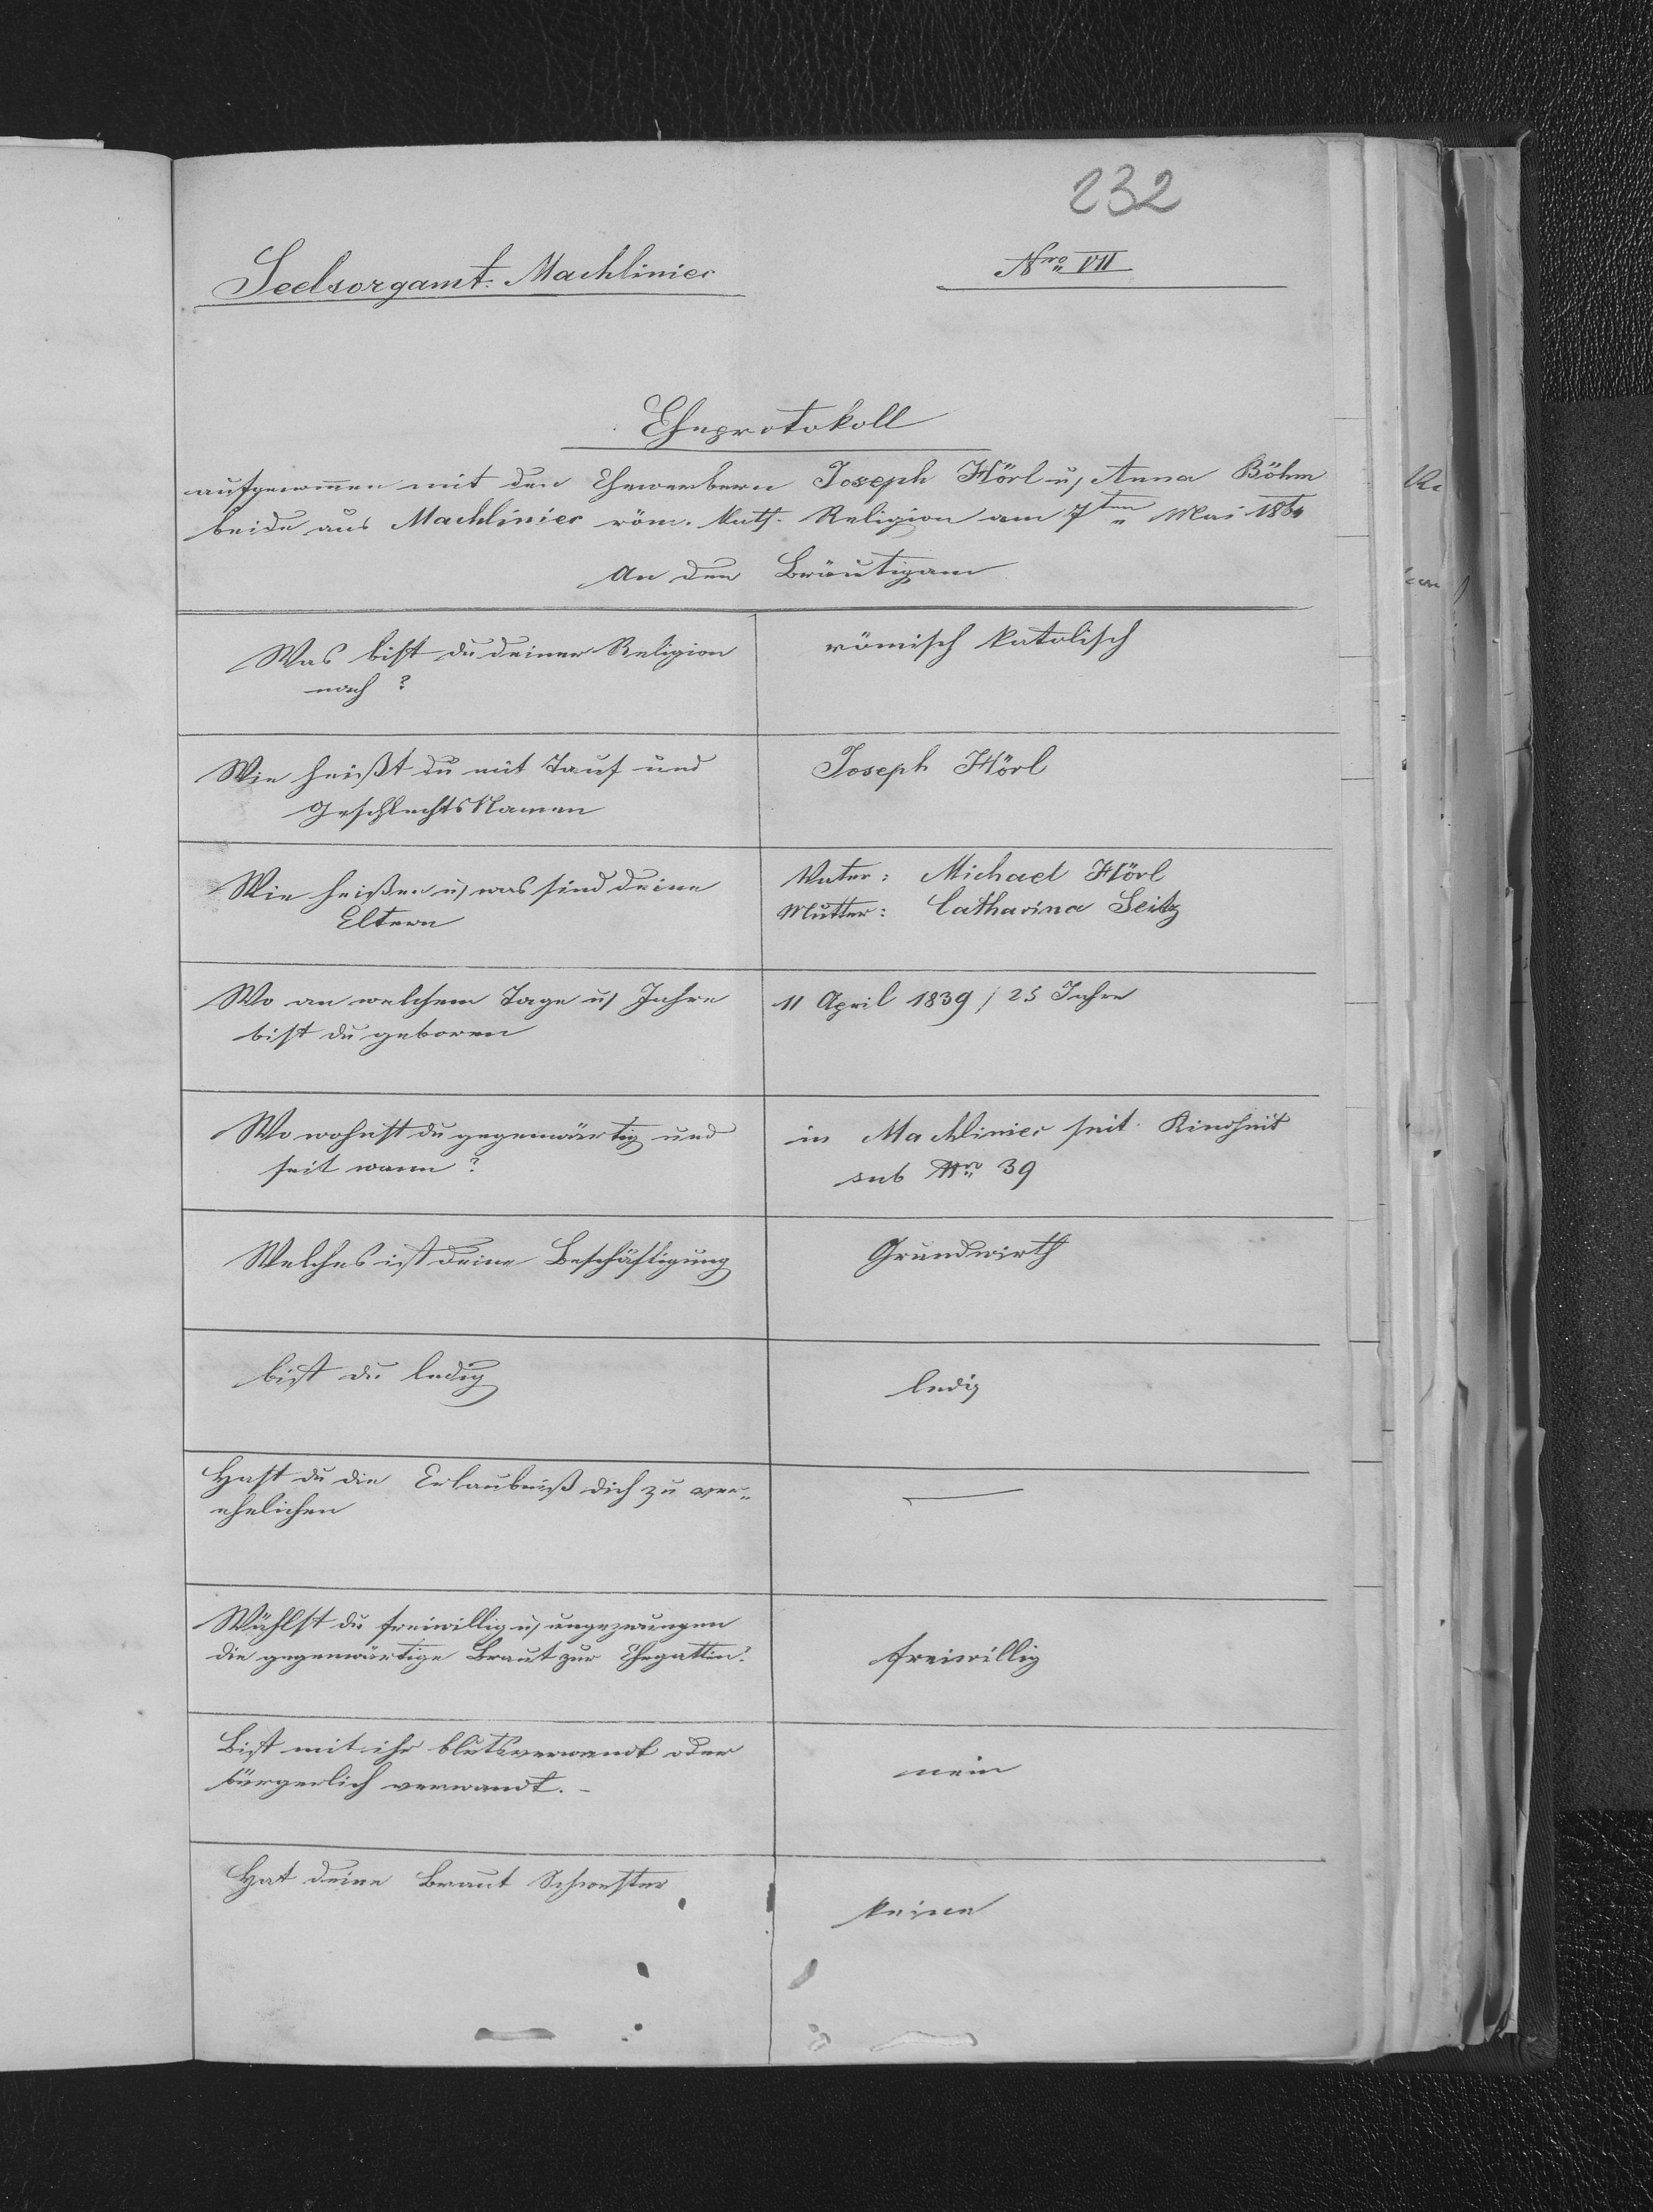 232
Seelsorgamt Machliniec
Nro VII
Eheprotokoll
aufgenommen mit den Ehewerbern Joseph Hörl u, Anna Böhm
beide aus Machliniec röm. kath. Religion am 7ten Mai 1864
An den Bräutigam
Was bist du deiner Religion
nach?
römisch katolisch
Wie heißt du mit Tauf und
Geschlechts Namen
Joseph Hörl
Wie heißen u, was sind deine
Eltern
Vater: Michael Hörl
Mutter: Catharina Seitz
Wo an welchem Tage u, Jahre
bist du geboren
11 April 1839 / 25 Jahre
Wo wohnst du gegenwärtig und
seit wann?
in Machliniec seit Kindheit
sub Nro 39
Welches ist deine Beschäftigung
Grundwirth
bist du ledig
ledig
Hast du die Erlaubniß dich zu ver„
ehelichen
—
Wählst du freiwillig u, ungezwungen
die gegenwärtige Braut zur Ehegattin?
freiwillig
Bist mit ihr blutsverwandt oder
bürgerlich verwandt. –
nein
Hat deine Braut Schwester
keine